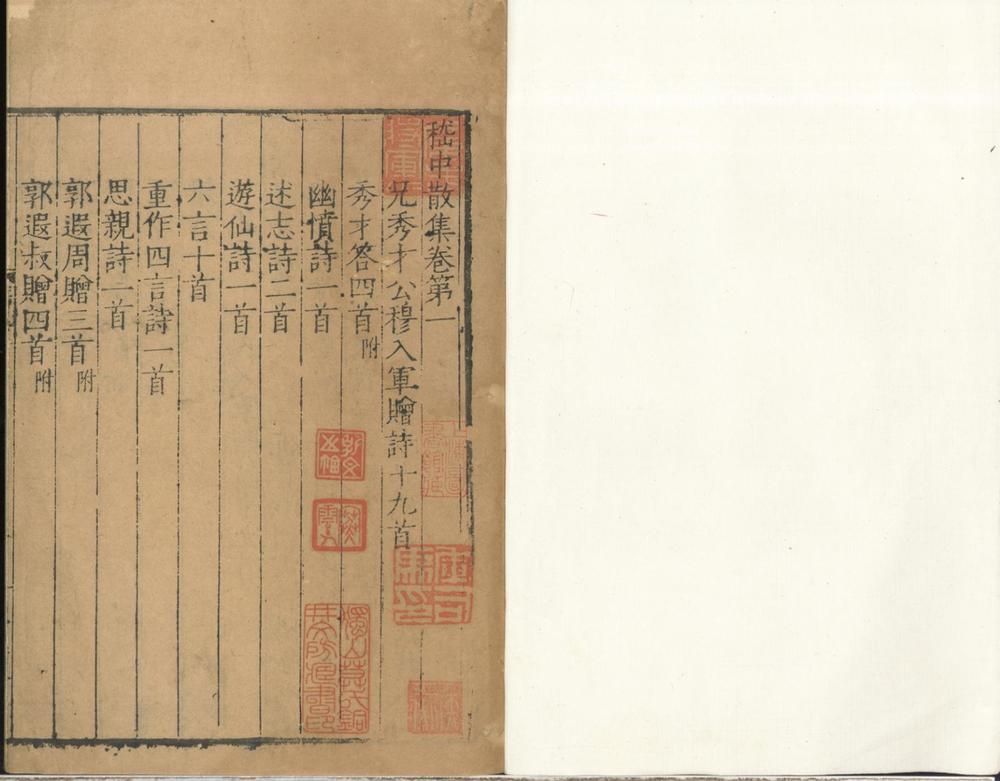 嵇中散集卷第一
兄秀才公穆入軍贈詩十九首
秀才答四首附
幽憤詩一首
述志詩二首
遊仙詩一首
六言十首
重作四言詩一首
思親詩一首
郭遐周贈三首附
郭遐叔贈四首附